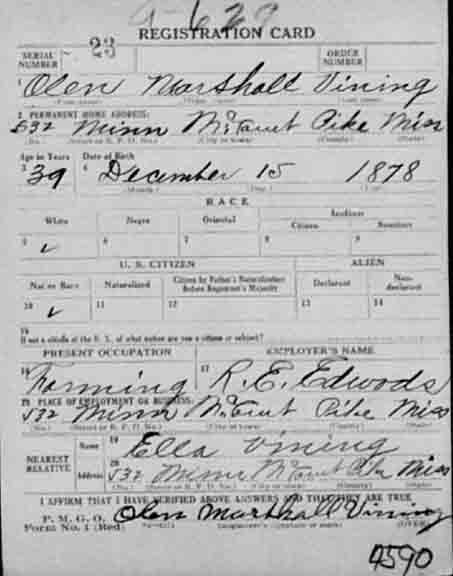 9-629
REGISTRATION CARD
SERIAL NUMBER 23 ORDER NUMBER
1 Olen Marshall Vining
(First name) (Middle name) (Last name)
2 PERMANENT HOME ADDRESS:
532 Minn McComb Pike Miss
(No.) (Street or R. F. D. No.) (City or town) (County) (State)
Age in Years Date of Birth
3 39 4 December 15 1878
(Month.) (Day.) (Year.)
RACE
White Negro Oriental Indian
Citizen Noncitizen
5 ✓ 6 7 8 9
U. S. CITIZEN ALIEN
Native Born Naturalized Citizen by Father's Naturalization Before Registrant's Majority Declarant Non-declarant
10 ✓ 11 12 13 14
15
If not a citizen of the U. S. of what nation are you a citizen or subject?
PRESENT OCCUPATION EMPLOYER'S NAME
16 Farming 17 R. E. Edwods
18 PLACE OF EMPLOYMENT OR BUSINESS:
532 Minn Pike Miss
(No.) (Street or R. F. D. No.) (City or town) (County) (State)
NEAREST RELATIVE Name 19 Ella Vining
Address 20 532 Minn Pike Miss
(No.) (Street or R. F. D. No.) (City or town) (County) (State)
I AFFIRM THAT I HAVE VERIFIED ABOVE ANSWERS AND THAT THEY ARE TRUE
P. M. G. O.
Form No. 1 (Red) Olen Marshall Vining
(Registrant's signature or mark) (OVER)
4590